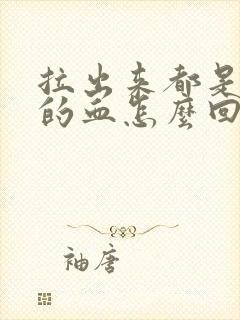 拉出来都是
的血怎麼回
袖唐